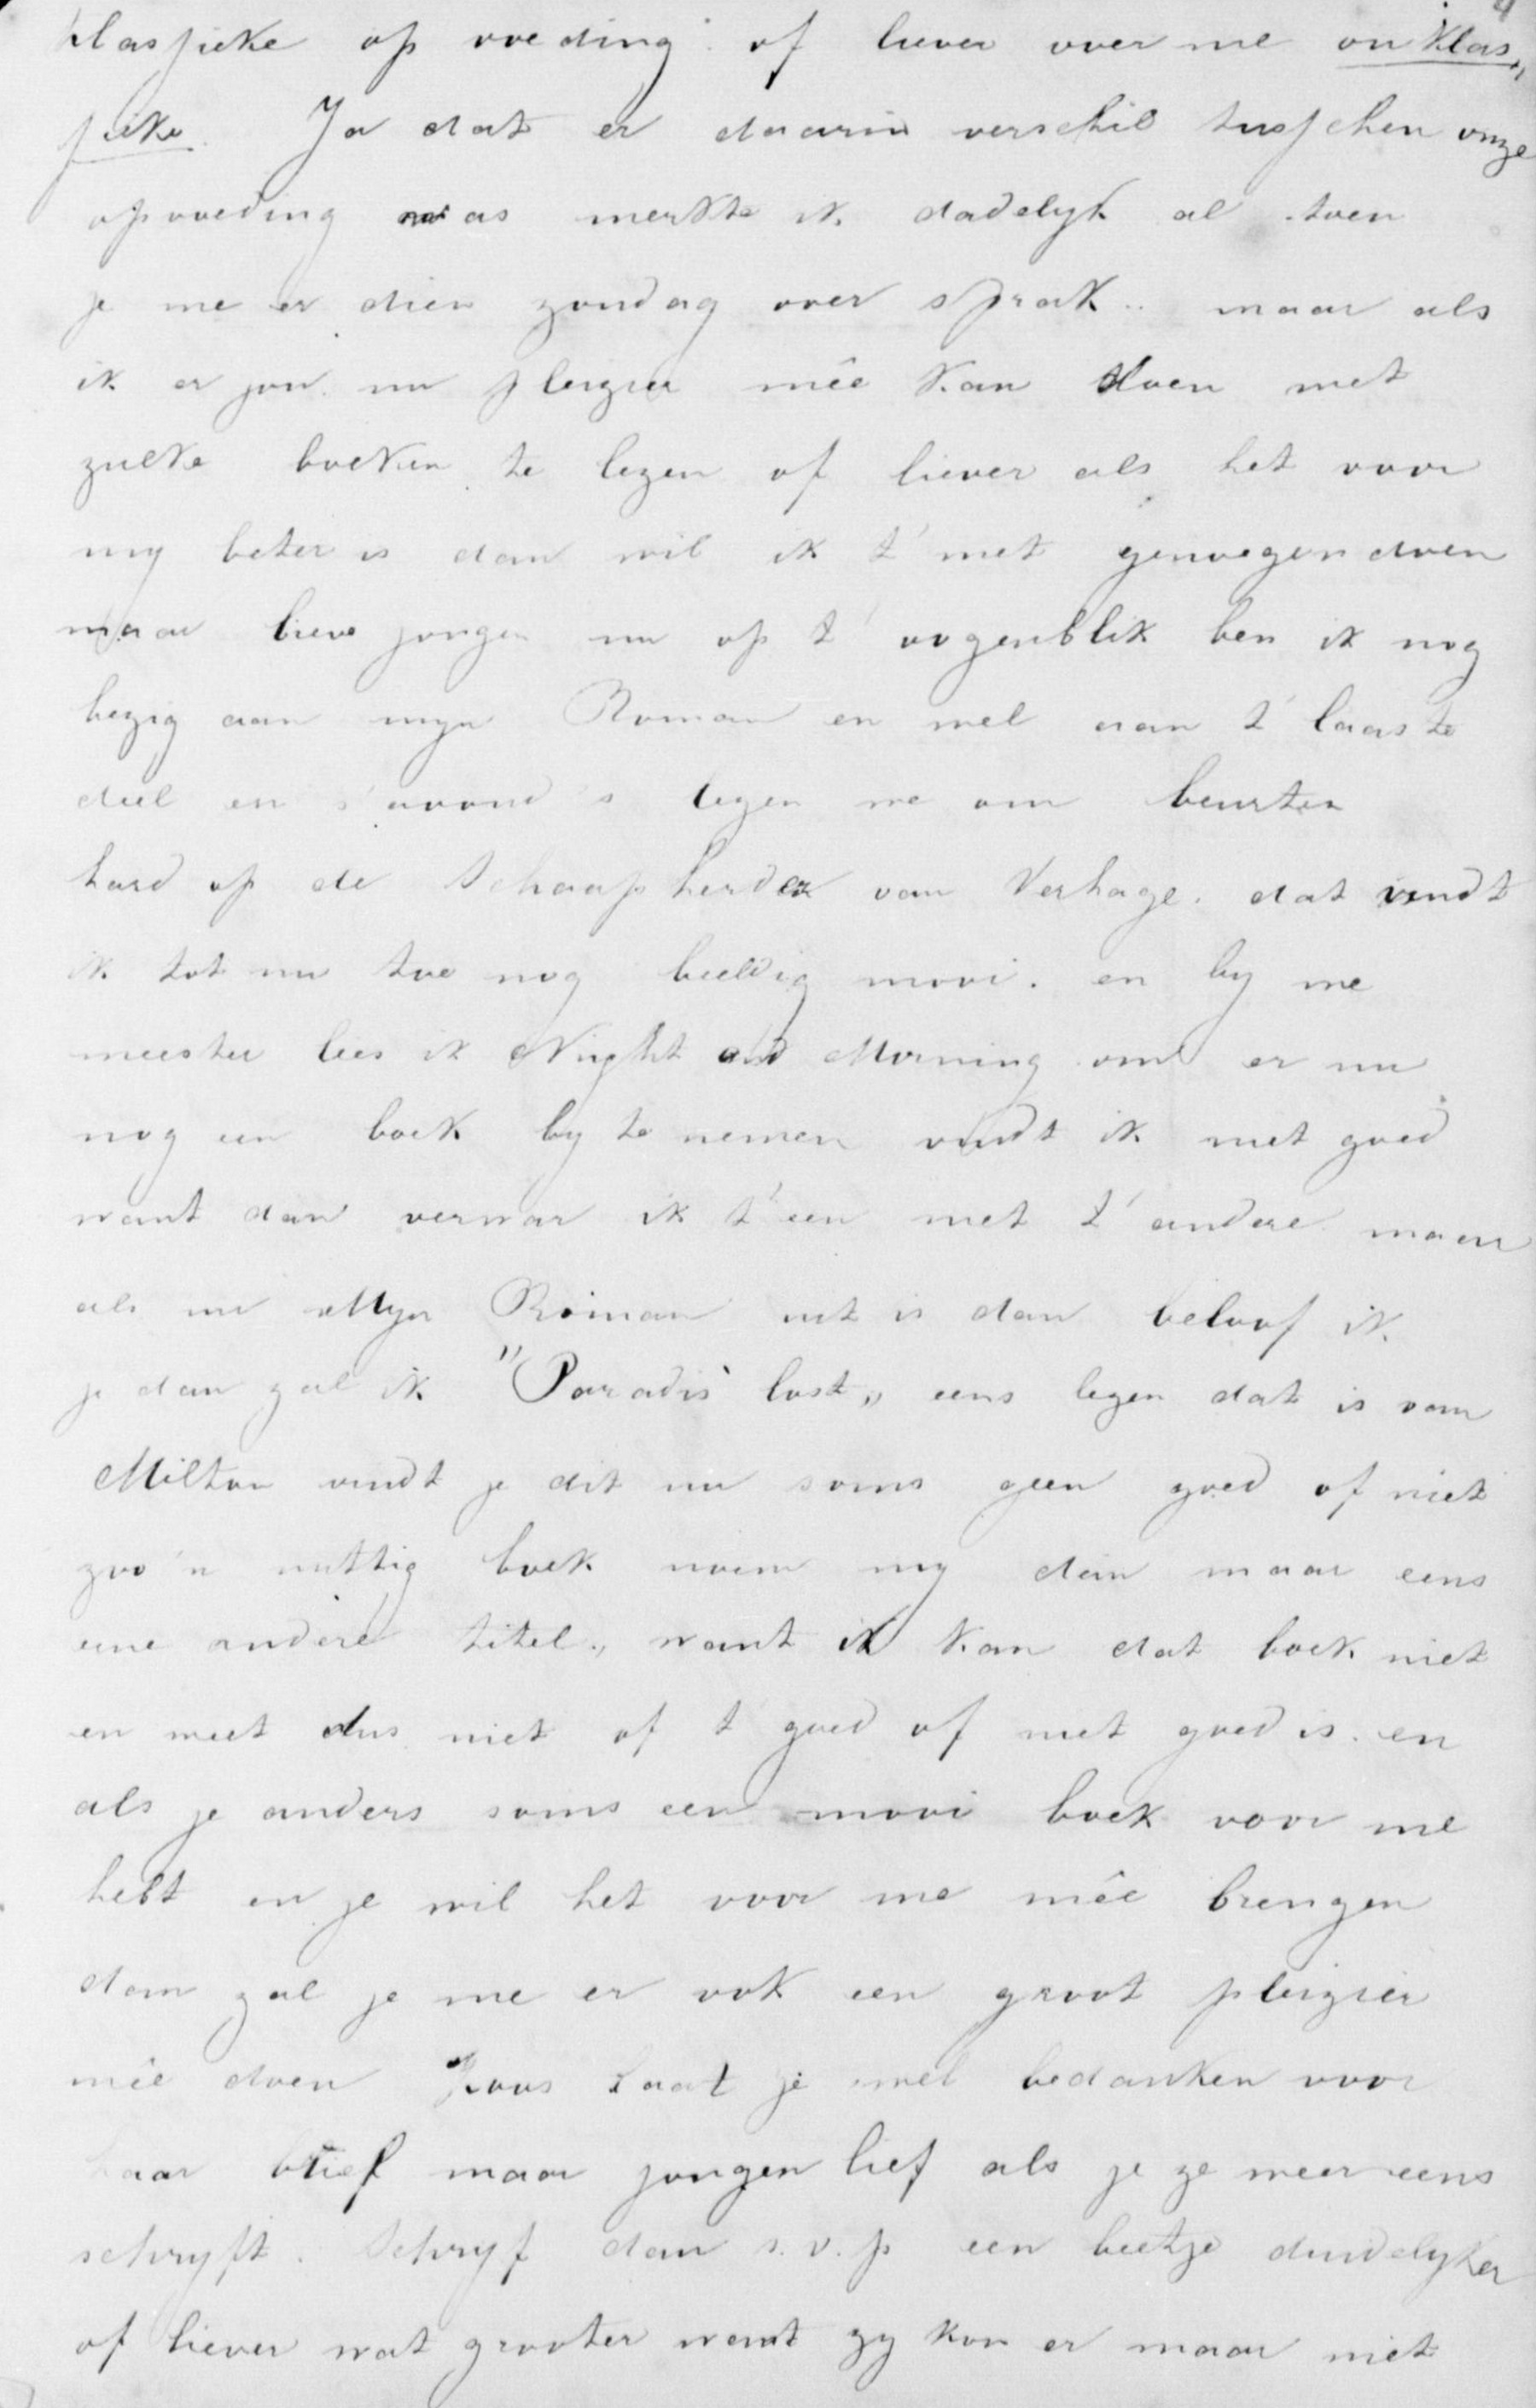 4
klassieke op voeding of liever over me onklas„
sieke. Ja dat er daarin verschil tusschen onze
opvoeding was merkte ik dadelyk al toen
je me er dien zondag over sprak.. maar als
ik er jou nu pleizier mêe kan doen met
zulke boeken te lezen of liever als het voor
my beter is dan wil ik t' met genoegen doen
maar lieve jongen nu op t' oogenblik ben ik nog
bezig aan myn Roman en wel aan t' laaste
deel en s'avond's lezen we om beurten
hard op de Schaapherder van Verhage. dat vindt
ik tot nu toe nog beeldig mooi. en by me
meester lees ik Night and Morning om er nu
nog een boek by te nemen vindt ik niet goed
want dan verwar ik t'een met t' andere maar
als nu Myn Roman uit is dan beloof ik
je dan zal ik "Paradis lost„ eens lezen dat is van
Milton vindt je dit nu soms geen goed of niet
zoo'n nuttig boek noem my dan maar eens
eene andere titel., want ik kan dat boek niet
en weet dus niet of t goed of niet goed is. en
als je anders soms een mooi boek voor me
hebt en je wil het voor me mêe brengen
dan zal je me er ook een groot pleizier
mêe doen Koos laat je wel bedanken voor
haar brief maar jongen lief als je ze weer eens
schryft. Schryf dan s.v.p een beetje duidelyker
of liever wat grooter want zy kon er maar niet